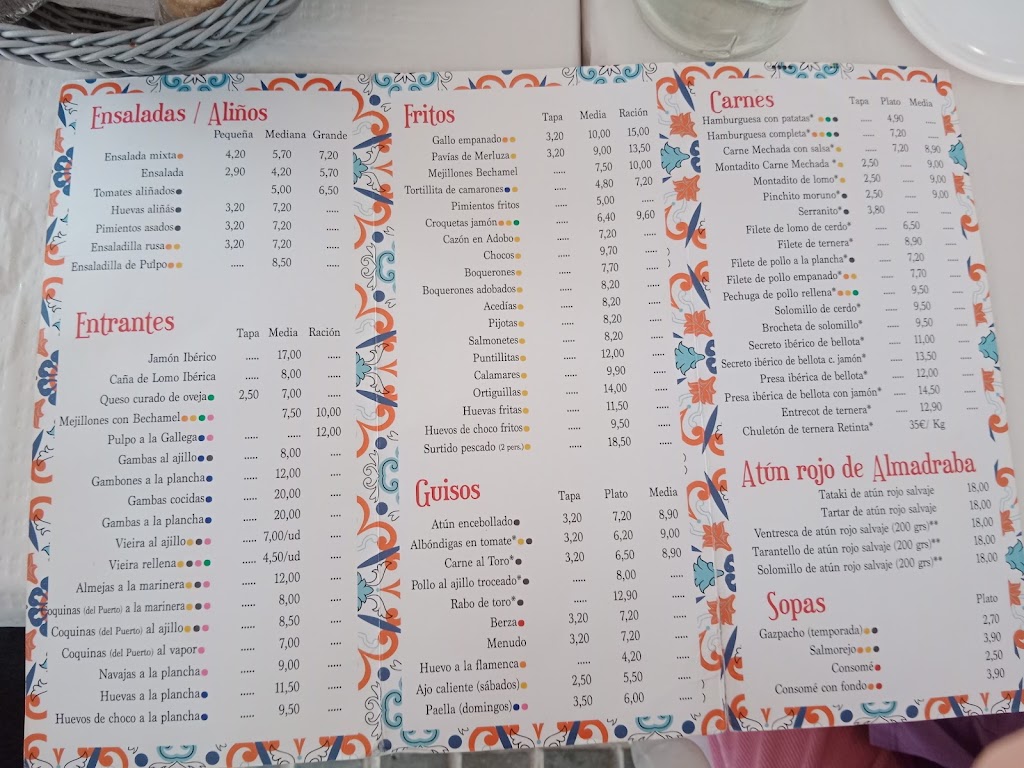 Ensaladas / Aliños
Pequeña Mediana Grande
Ensalada mixta 4,20 5,70 7,20
Ensalada 2,90 4,20 5,70
Tomates aliñados 5,00 6,50
Huevas aliñás 3,20 7,20 .....
Pimientos asados 3,20 7,20 .....
Ensaladilla rusa 3,20 7,20 .....
Ensaladilla de Pulpo ..... 8,50 .....
Entrantes
Tapa Media Ración
Jamón Ibérico ..... 17,00 .....
Caña de Lomo Ibérica ..... 8,00 .....
Queso curado de oveja 2,50 7,00 .....
Mejillones con Bechamel 7,50 10,00
Pulpo a la Gallega ..... ..... 12,00
Gambas al ajillo ..... 8,00 .....
Gambones a la plancha ..... 12,00 .....
Gambas cocidas ..... 20,00 .....
Gambas a la plancha ..... 20,00 .....
Vieira al ajillo ..... 7,00/ud .....
Vieira rellena ..... 4,50/ud .....
Almejas a la marinera ..... 12,00 .....
Coquinas (del Puerto) a la marinera ..... 8,00 .....
Coquinas (del Puerto) al ajillo ..... 8,50 .....
Coquinas (del Puerto) al vapor ..... 7,00 .....
Navajas a la plancha ..... 9,00 .....
Huevas a la plancha ..... 11,50 .....
Huevos de choco a la plancha ..... 9,50 .....
Fritos
Tapa Media Ración
Gallo empanado 3,20 10,00 15,00
Pavías de Merluza 3,20 9,00 13,50
Mejillones Bechamel ..... 7,50 10,00
Tortillita de camarones ..... 4,80 7,20
Pimientos fritos ..... 5,00 .....
Croquetas jamón ..... 6,40 9,60
Cazón en Adobo ..... 7,20 .....
Chocos ..... 9,70 .....
Boquerones ..... 7,70 .....
Boquerones adobados ..... 8,20 .....
Acedías ..... 8,20 .....
Pijotas ..... 8,20 .....
Salmonetes ..... 8,20 .....
Puntillitas ..... 12,00 .....
Calamares ..... 9,90 .....
Ortiguillas ..... 14,00 .....
Huevas fritas ..... 11,50 .....
Huevos de choco fritos ..... 9,50 .....
Surtido pescado (2 pers.) ..... 18,50 .....
Guisos
Tapa Plato Media
Atún encebollado 3,20 7,20 8,90
Albóndigas en tomate* 3,20 6,20 9,00
Carne al Toro* 3,20 6,50 8,90
Pollo al ajillo troceado* ..... 8,00 .....
Rabo de toro* ..... 12,90 .....
Berza 3,20 7,20 .....
Menudo 3,20 7,20 .....
Huevo a la flamenca ..... 4,20 .....
Ajo caliente (sábados) 2,50 5,50 .....
Paella (domingos) 3,50 6,00 .....
Carnes
Tapa Plato Media
Hamburguesa con patatas* ..... 4,90 .....
Hamburguesa completa* ..... 7,20 .....
Carne Mechada con salsa* ..... 7,20 8,90
Montadito Carne Mechada * 2,50 ..... 9,00
Montadito de lomo* 2,50 ..... 9,00
Pinchito moruno* 2,50 ..... 9,00
Serranito* 3,80 ..... .....
Filete de lomo de cerdo* ..... 6,50 .....
Filete de ternera* ..... 8,90 .....
Filete de pollo a la plancha* ..... 7,20 .....
Filete de pollo empanado* ..... 7,70 .....
Pechuga de pollo rellena* ..... 9,50 .....
Solomillo de cerdo* ..... 9,50 .....
Brocheta de solomillo* ..... 9,50 .....
Secreto ibérico de bellota* ..... 11,00 .....
Secreto ibérico de bellota c. jamón* ..... 13,50 .....
Presa ibérica de bellota* ..... 12,00 .....
Presa ibérica de bellota con jamón* ..... 14,50 .....
Entrecot de ternera* ..... 12,90 .....
Chuletón de ternera Retinta* 35€/ Kg
Atún rojo de Almadraba
Tataki de atún rojo salvaje 18,00
Tartar de atún rojo salvaje 18,00
Ventresca de atún rojo salvaje (200 grs)** 18,00
Tarantello de atún rojo salvaje (200 grs)** 18,00
Solomillo de atún rojo salvaje (200 grs)** 18,00
Sopas
Plato
Gazpacho (temporada) 2,70
Salmorejo 3,90
Consomé 2,50
Consomé con fondo 3,90